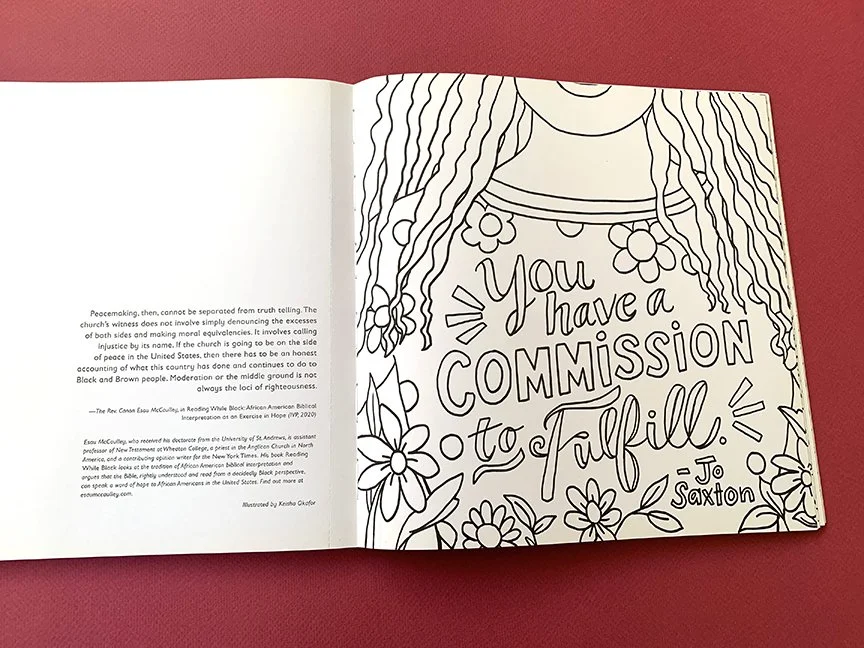 Peacemaking, then, cannot be separated from truth telling. The
church's witness does not involve simply denouncing the excesses
of both sides and making moral equivalencies. It involves calling
injustice by its name. If the church is going to be on the side
of peace in the United States, then there has to be an honest
accounting of what this country has done and continues to do to
Black and Brown people. Moderation or the middle ground is not
always the loci of righteousness.
—The Rev. Canon Esau McCaulley, in Reading While Black: African American Biblical
Interpretation as an Exercise in Hope (IVP, 2020)
Esau McCaulley, who received his doctorate from the University of St. Andrews, is assistant
professor of New Testament at Wheaton College, a priest in the Anglican Church in North
America, and a contributing opinion writer for the New York Times. His book Reading
While Black looks at the tradition of African American biblical interpretation and
argues that the Bible, rightly understood and read from a decidedly Black perspective,
can speak a word of hope to African Americans in the United States. Find out more at
esaumccaulley.com.
Illustrated by Keisha Okafor
You
have a
COMMiSSiON
to Fulfill.
- Jo
Saxton